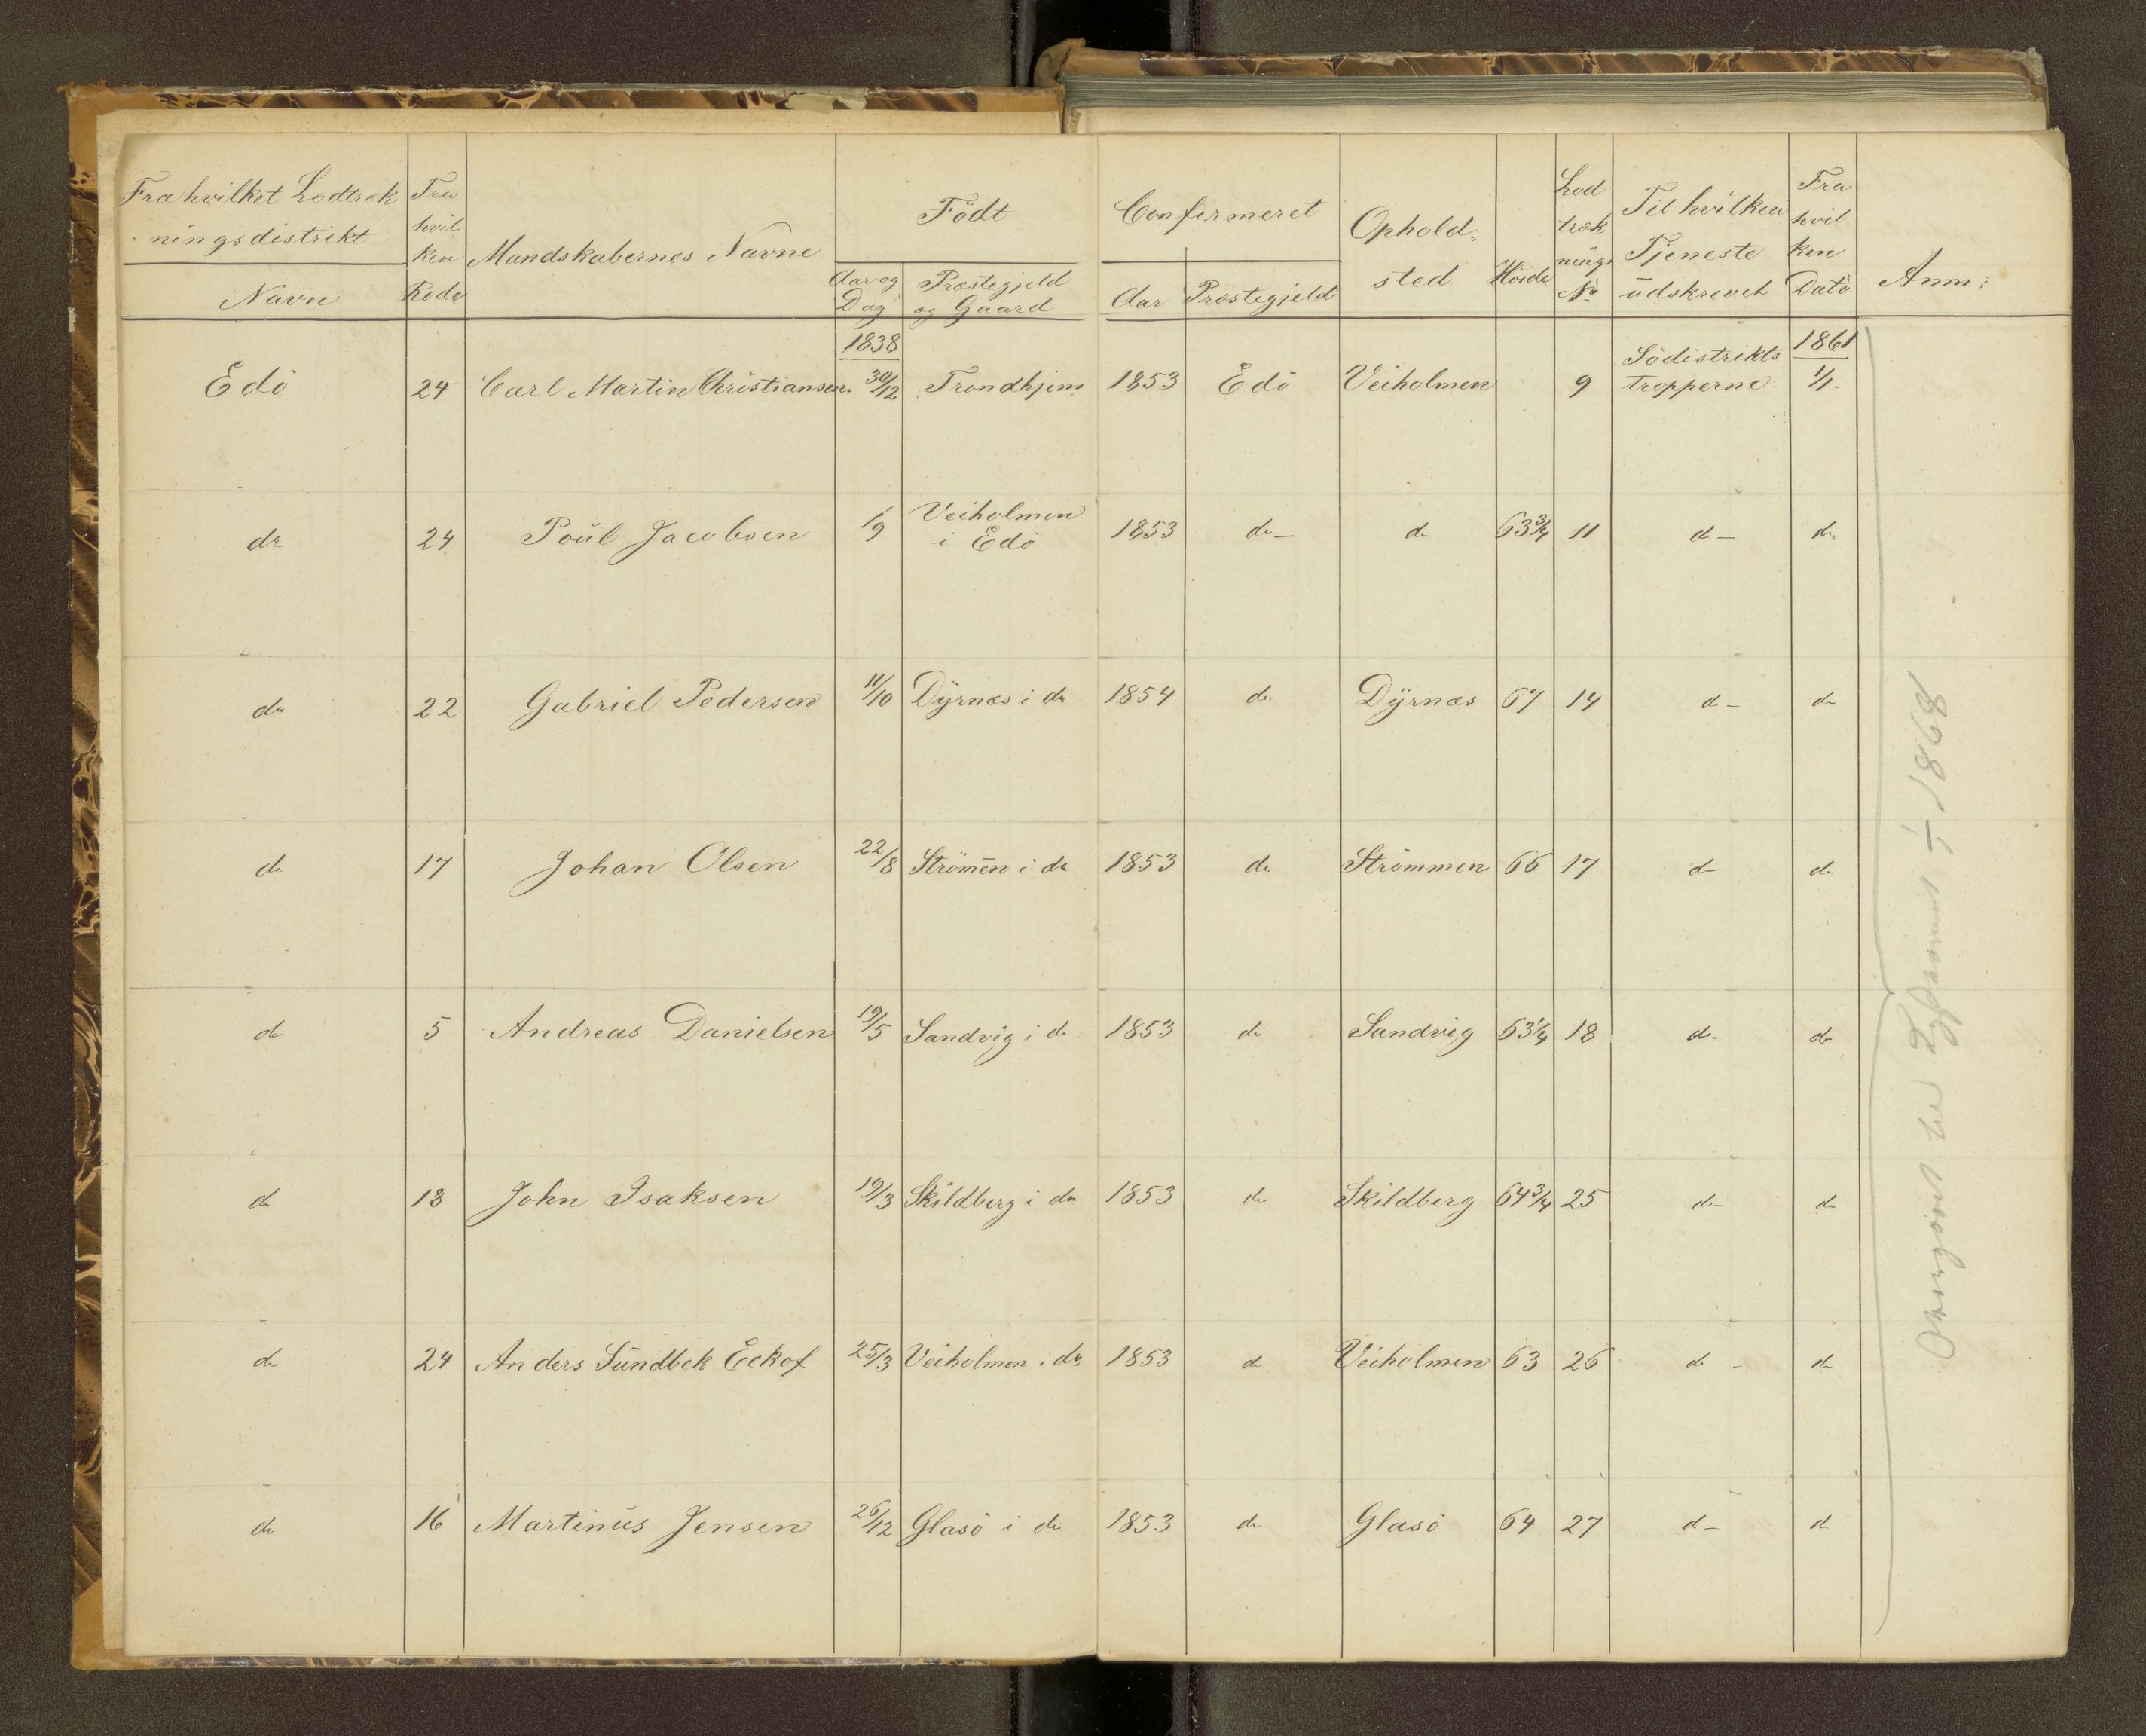 Fra hvilket Lodtræk
ningsdistrikt
Navn
Fra
hvil
ken
Rode
Mandskabernes Navne
Født
Aar og
Dag
Præstegjeld
og Gaard
Confirmeret
Aar
Præstegjeld
Ophold„
sted
Høide
Lod
træk
nings
No
Til hvilken
Tjeneste
udskrevet
Fra
hvil
ken
Dato
Anm:
1838
1861
Edö 24 Carl Martin Christiansen 30/12 Trondhjem 1853 Edö Veiholmen 9 Södistrikts
tropperne 1/1.
do 24 Poul Jacobsen 1/9 Veiholmen
i Edö 1853 do– do 63 3/4 11 do– do
do 22 Gabriel Pedersen 11/10 Dyrnæs i do 1854 do Dyrnæs 67 14 do– do
do 17 Johan Olsen 22/8 Strömen i do 1853 do Strömmen 66 17 do do
do 5 Andreas Danielsen 19/5 Sandvig i do 1853 do Sandvig 63 1/4 18 do– do
do 18 John Isaksen 19/3 Skildberg i do 1853 do Skildberg 64 3/4 25 do– do
do 24 Anders Sundbek Eckof 25/3 Veiholmen i do 1853 do Veiholmen 63 26 do – do
do 16 Martinus Jensen 26/12 Glasö i do 1853 do Glasö 64 27 do– do
1/1 1868